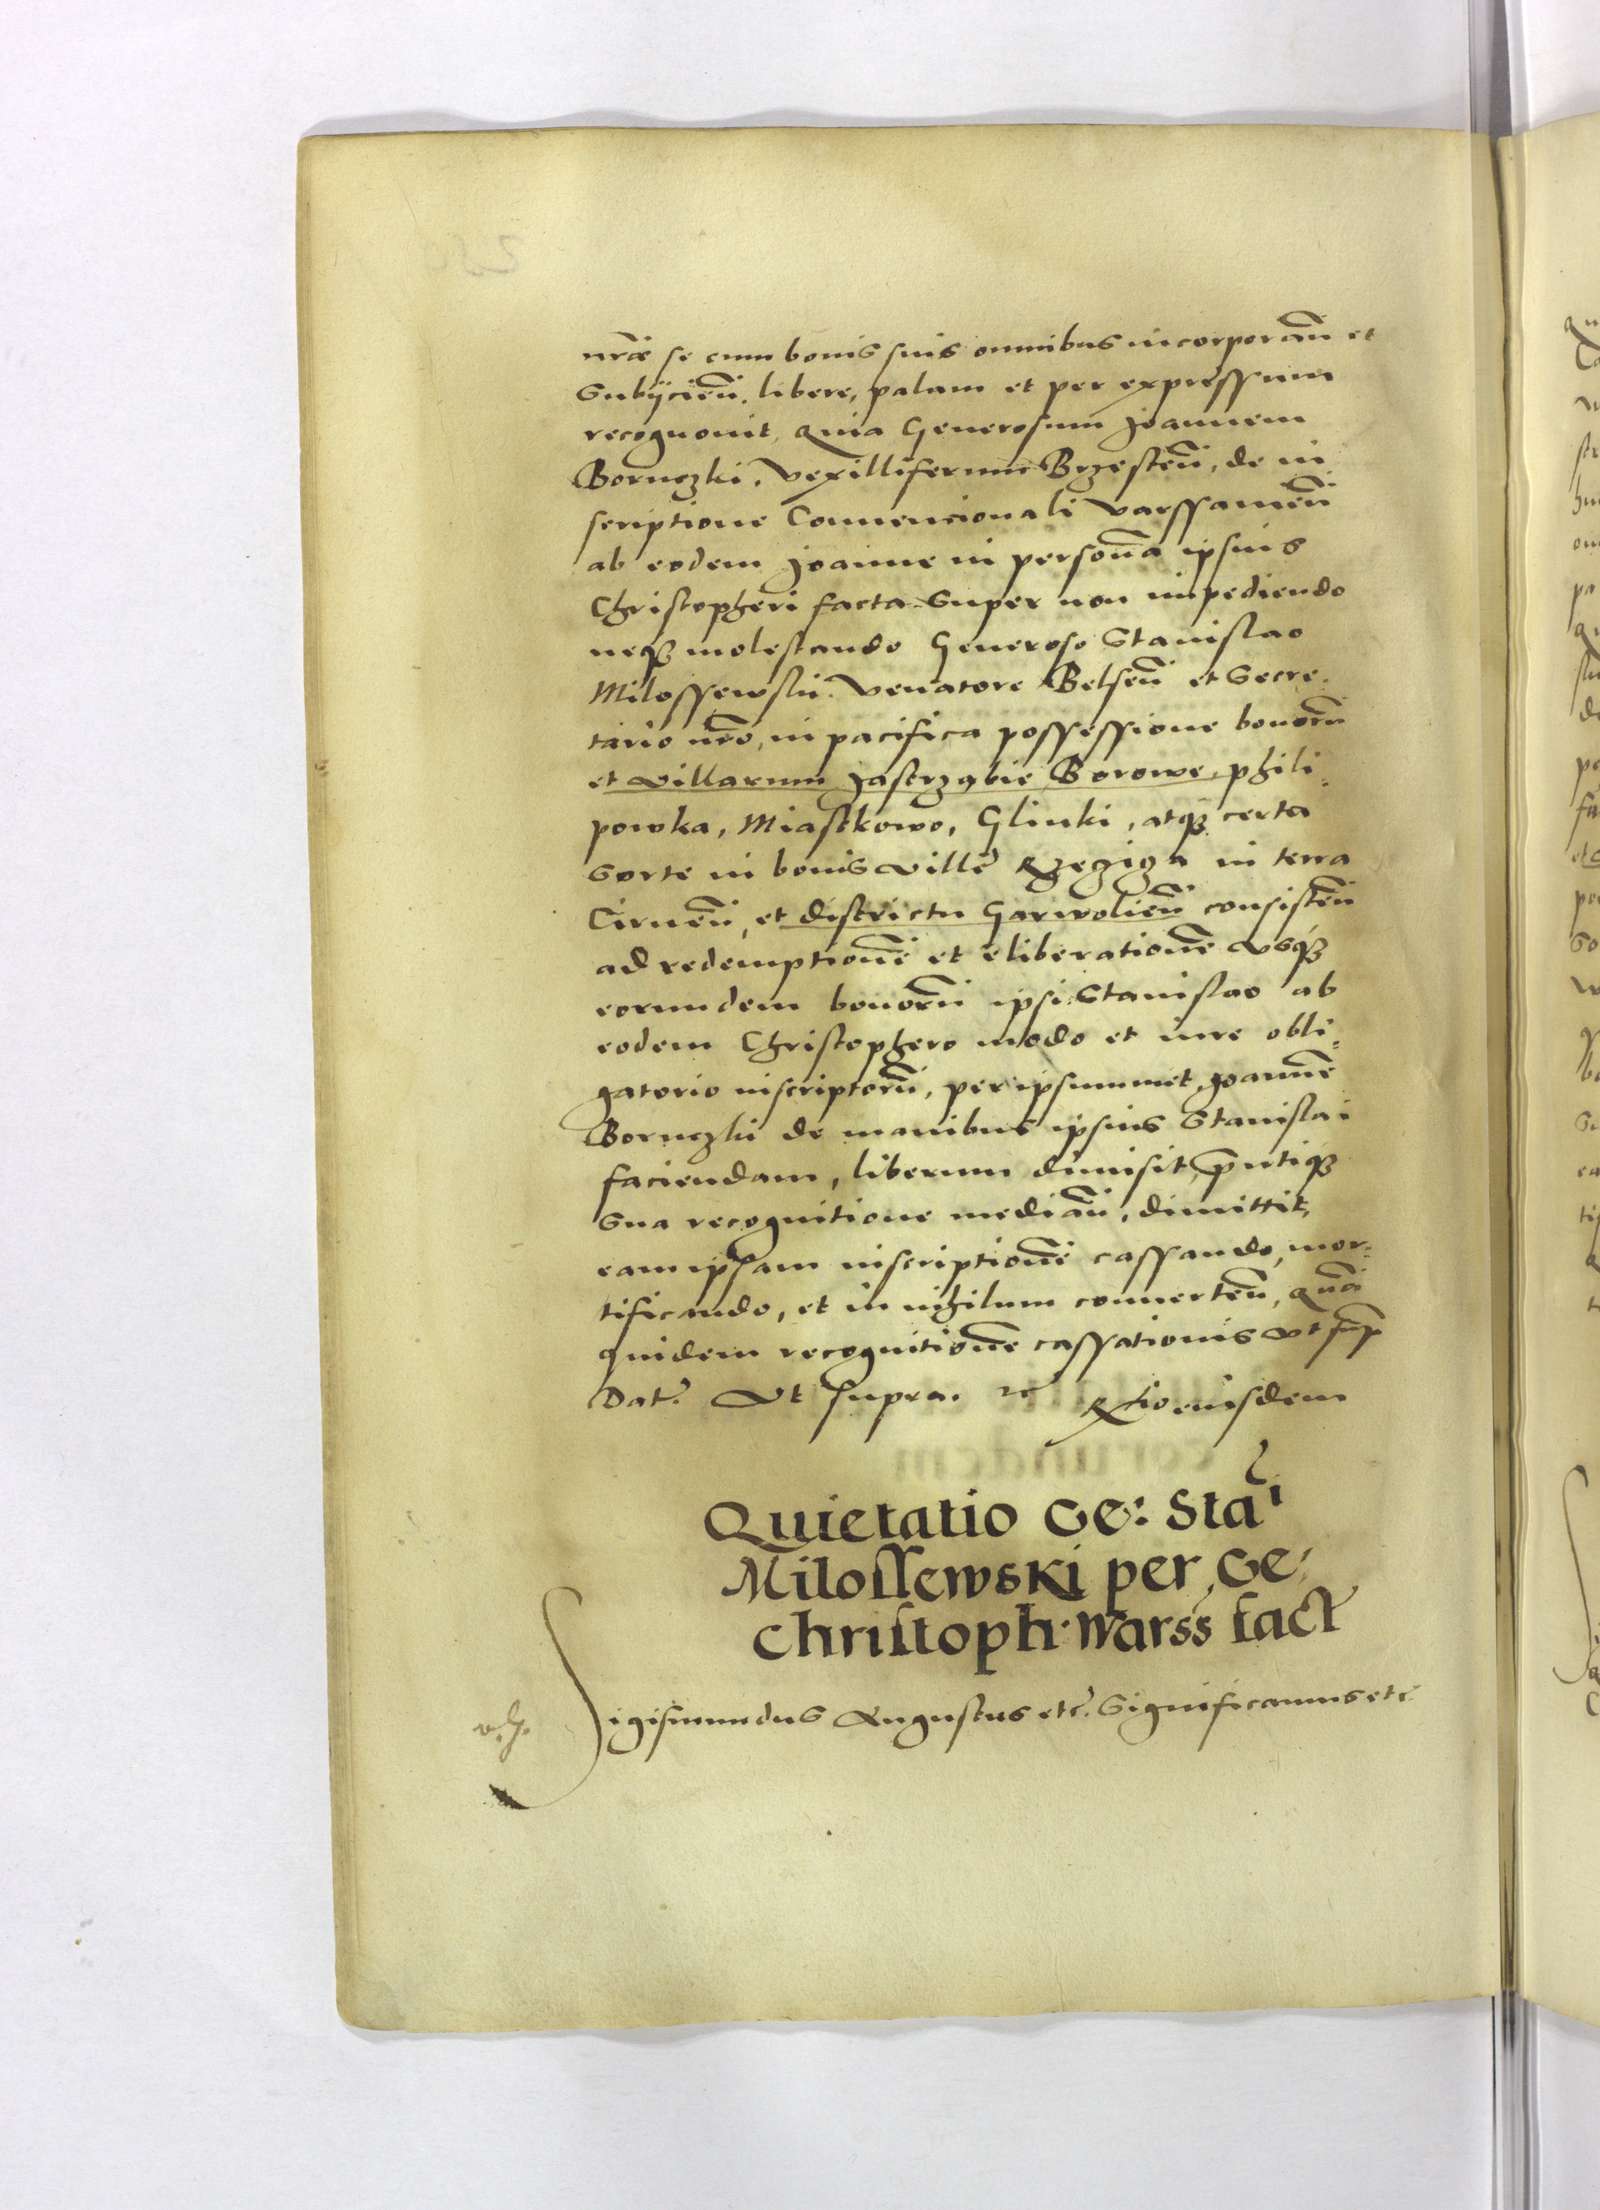 nrãe se cum bonis suis omnibus incorporan̄ et
Subijcien̄. libere, palam et per expressum
recognouit, quia Generosum Joannem
Boruczki, Vexilliferum Brzesten̄, de in
scriptione Conuencionali Varssauien̄
ab eodem Joanne in persona ipsius
Christopheri facta super non impediendo
neqz molestando Generoso Stanislao
Milossewski. Venatore Belsen̄ et Secre-
tario nr̃o, in pacifica possessione bonorũ
et villarum Jastrząbie, Borowe, phili-
powka, Miastkowo, Glinki, atqz certa
Sorte in bonis ville Rzeziga in terra
Cirnen̄, et districtu Garwolien̄ consisten̄
ad redemptionẽ et eliberationẽ vsqz
eorumdem bonorũ ipsi Stanislao ab
eodem Christophero modo et iure obli-
gatorio inscriptorũ, per ipsummet Joannẽ
Boruczki de manibus ipsius Stanislai
faciendam, liberum dimisit, pñtiqz
Sua recognitione median̄, dimittit,
eam ipsam inscriptionẽ cassando, mor-
tificando, et in nihilum conuerten̄, quã
quidem recognitionẽ cassationis vt sup̃
Dat. Vt supra. rc Rtio eiusdem
Quietatio Ge: Sta:
Milossewski per Ge:
Christoph: Warss fact
Sigismundus Augustus etc. Significamus etc